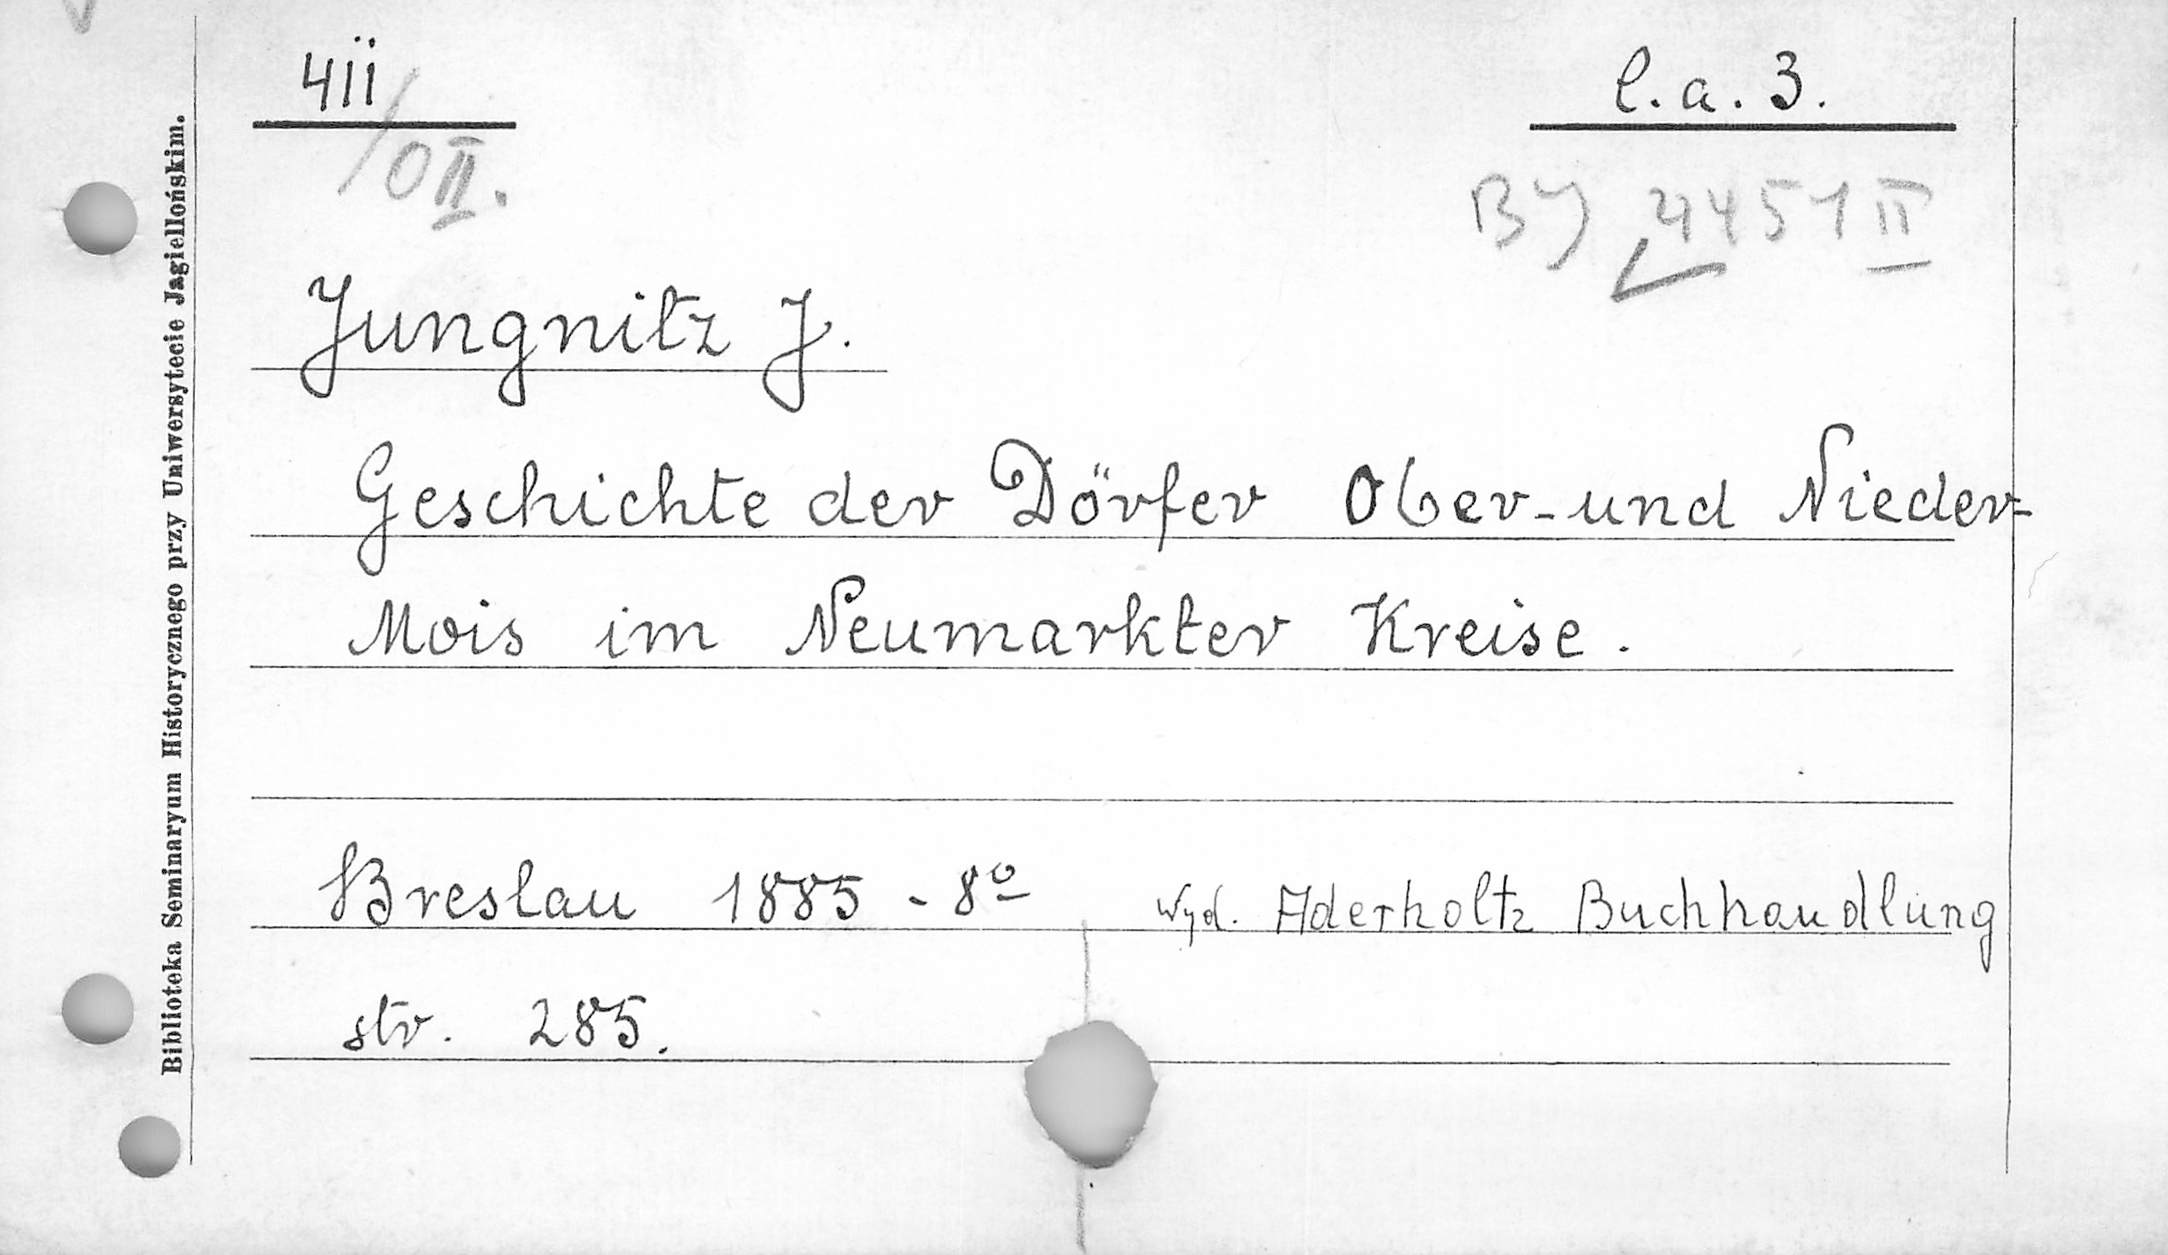 4ii
/OII.
l. a. 3.
BJ 4451 II
Jungnitz J.
Geschichte der Dörfer Ober-und Nieder-
Mois im Neumarkter Kreise.
Breslau 1885 - 8º wyd. Aderholtz Buchhandlung
str. 285.
Biblioteka Seminaryum Historycznego przy Uniwersytecie Jagiellońskim.